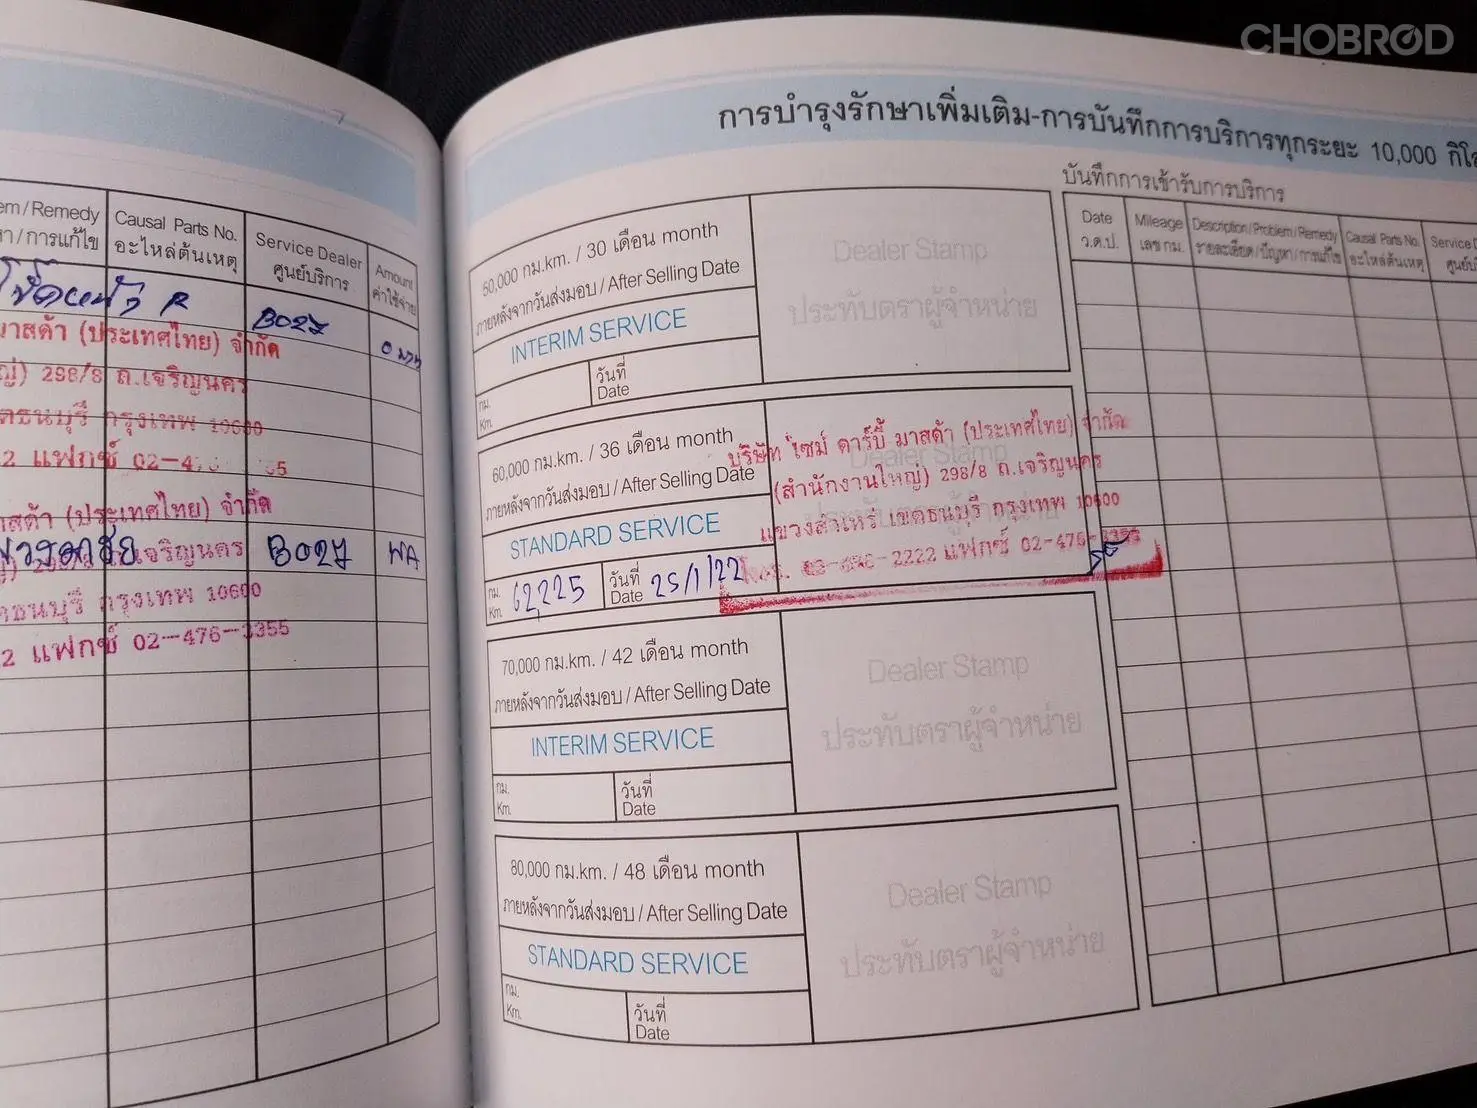 CHOBROD
em/Remedy
หา/การแก้ไข
Causal Parts No.
อะไหล่ต้นเหตุ
Service Dealer
ศูนย์บริการ
Amount
ค่าใช้จ่าย
R
B027
0 บาท
มาสด้า (ประเทศไทย) จำกัด
ญ่) 298/8 ถ.เจริญนคร
ตธนบุรี กรุงเทพ 10600
2 แฟกซ์ 02-47
มาสด้า (ประเทศไทย) จำกัด
เจริญนคร
B027
WA
ตธนบุรี กรุงเทพ 10600
2 แฟกซ์ 02-476-3355
การบำรุงรักษาเพิ่มเติม-การบันทึกการบริการทุกระยะ 10,000 กิโล
50,000 กม.km. / 30 เดือน month
ภายหลังจากวันส่งมอบ / After Selling Date
INTERIM SERVICE
กม.
Km.
วันที่
Date
Dealer Stamp
ประทับตราผู้จำหน่าย
60,000 กม.km. / 36 เดือน month
ภายหลังจากวันส่งมอบ / After Selling Date
STANDARD SERVICE
กม.
Km.
62,225
วันที่
Date
25/1/22
Dealer Stamp
บริษัท ไซม์ ดาร์บี้ มาสด้า (ประเทศไทย) จำกัด
(สำนักงานใหญ่) 298/8 ถ.เจริญนคร
แขวงสำเหร่ เขตธนบุรี กรุงเทพ 10600
2222 แฟกซ์ 02-476-3355
70,000 กม.km. / 42 เดือน month
ภายหลังจากวันส่งมอบ / After Selling Date
INTERIM SERVICE
กม.
Km.
วันที่
Date
Dealer Stamp
ประทับตราผู้จำหน่าย
80,000 กม.km. / 48 เดือน month
ภายหลังจากวันส่งมอบ / After Selling Date
STANDARD SERVICE
กม.
Km.
วันที่
Date
Dealer Stamp
ประทับตราผู้จำหน่าย
บันทึกการเข้ารับการบริการ
Date
ว.ด.ป.
Mileage
เลข กม.
Description/Problem/Remedy
รายละเอียด/ปัญหา/การแก้ไข
Causal Parts No.
อะไหล่ต้นเหตุ
Service D
ศูนย์บ